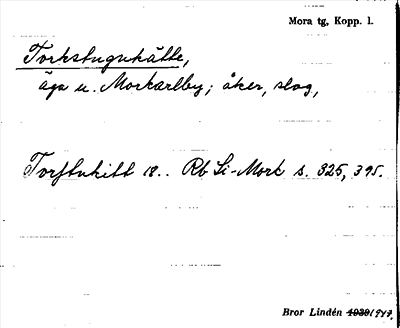 Mora tg, Kopp. l.
Torkstugukätte,
äga u. Morkarlby; åker, slog,
Torftukitt 18.. Rb Si-Mork s. 325, 395.
Bror Lindén 1939 1947.